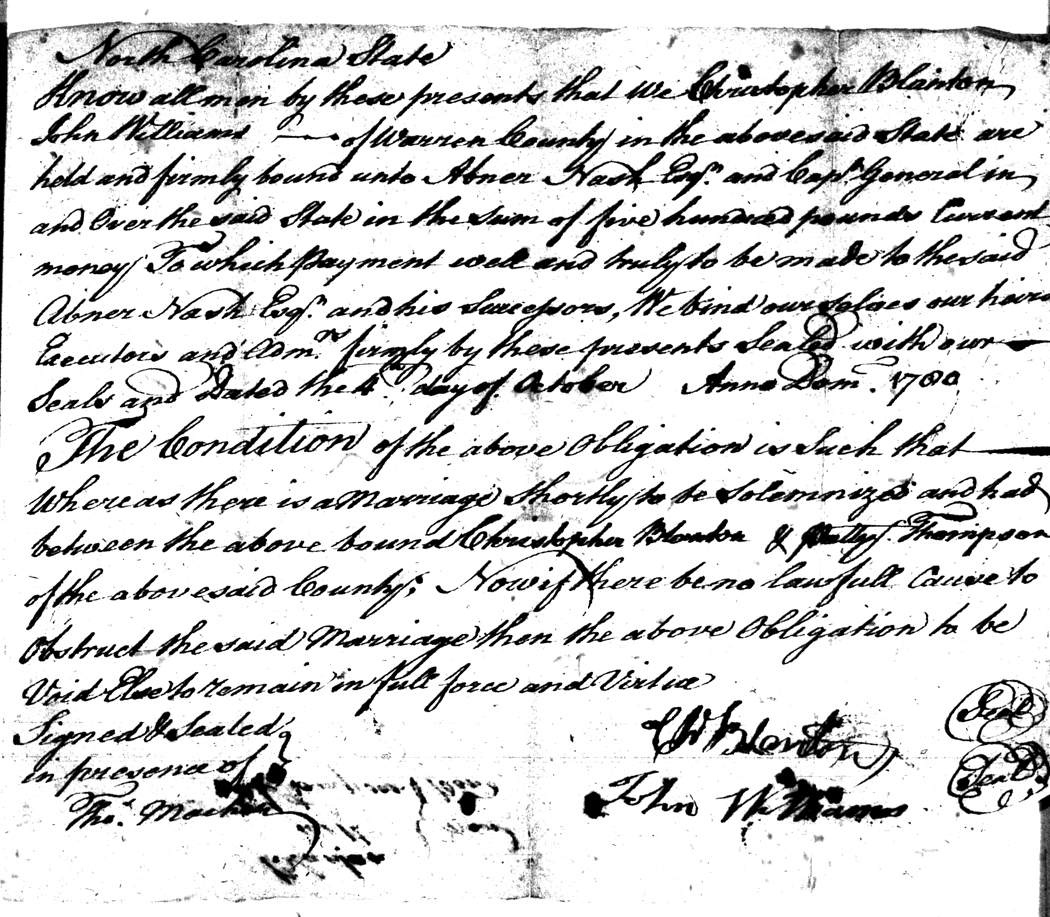 North Carolina State
Know all men by these presents that we Christopher Blanton
John Williams — of Warren County in the abovesaid State are
held and firmly bound unto Abner Nash Esqr. and Capt. General in
and Over the said State in the Sum of five hundred pounds Current
money To which Payment well and truly to be made to the said
Abner Nash Esqr. and his Successors, We bind ourselves our heirs
Executors and Admrs. firmly by these presents Sealed with our
Seals and Dated the 4th day of October Anno Dom. 1780
The Condition of the above Obligation is Such that
Whereas there is a Marriage Shortly to be Solemnized and had
between the above bound Christopher Blanton & Patty Thompson
of the abovesaid County; Now if there be no lawfull Cause to
Obstruct the said Marriage then the above Obligation to be
Void Else to remain in full force and Virtue
Signed & Sealed
in presence of
Thos.
Chr Blanton Seal
John Williams Seal